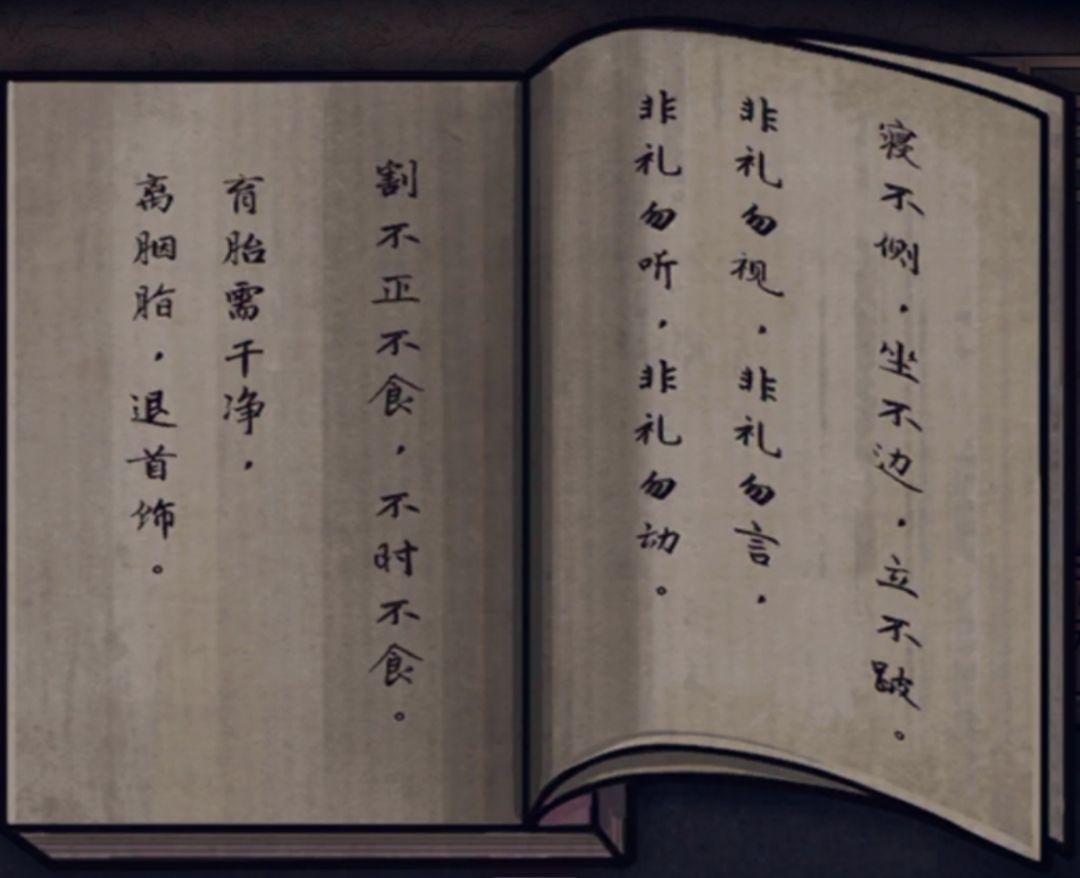 寝不侧，坐不边，立不跛。
非礼勿视，非礼勿言，
非礼勿听，非礼勿动。
割不正不食，不时不食。
育胎需干净，
离胭脂，退首饰。